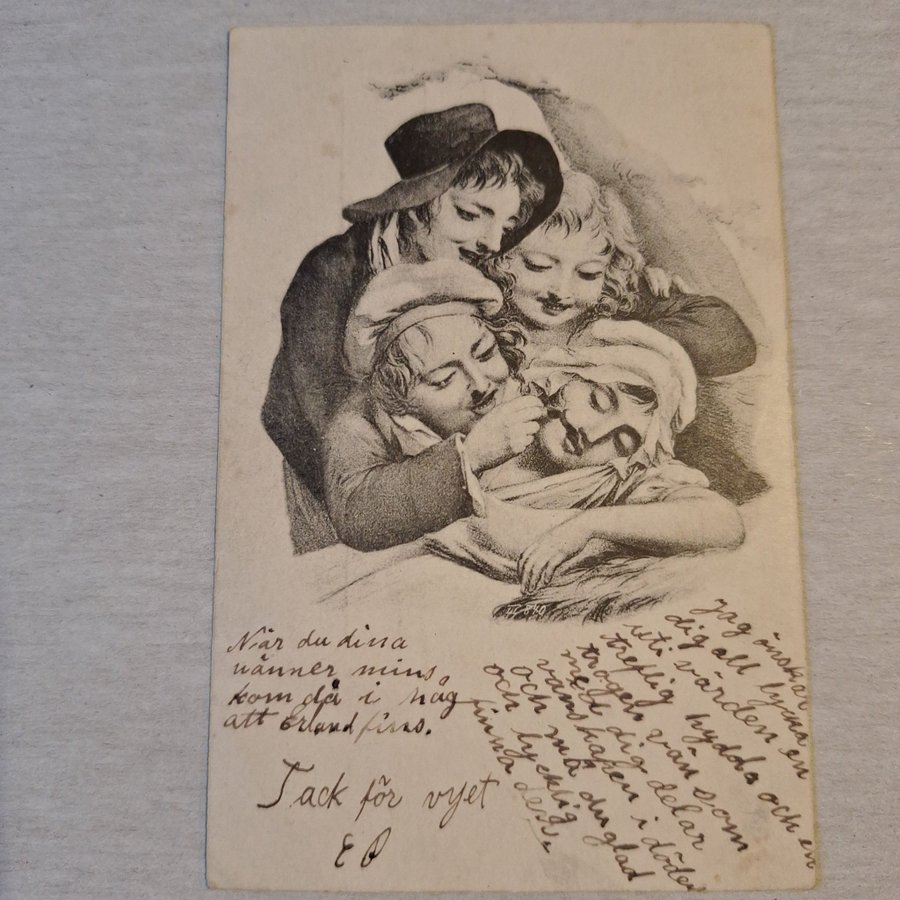 När du dina
vänner mins,
kom då i håg
att Erland fins.
Tack för vyet
E P
Jag önskar
dig all lycka
uti värden en
treflig hydda och en
trogen vän som
med dig delar
vänskapen i döden
och må du glad
och lycklig
finna dess.
840